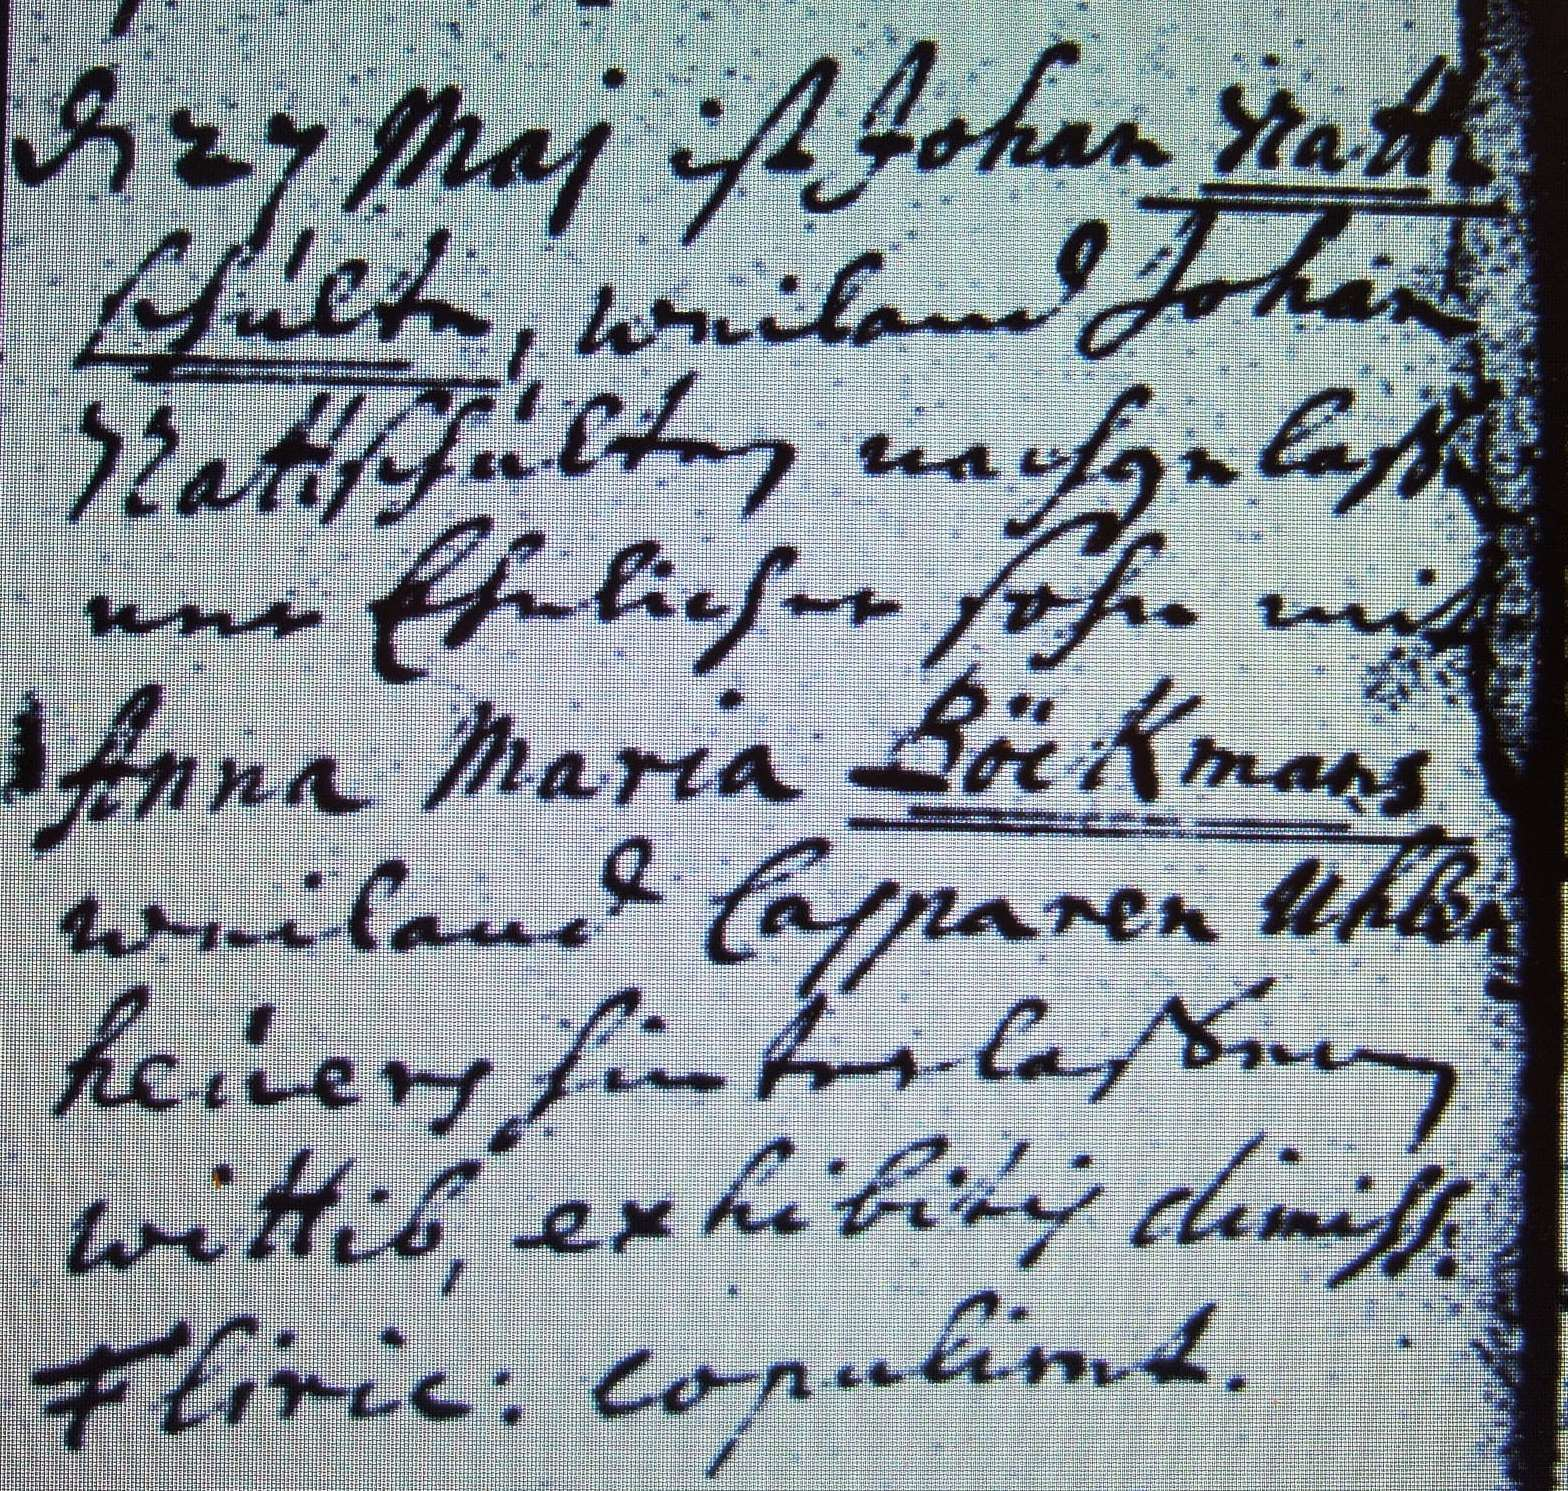 27 Maj ist Johan Ratt
schülten, weiland Johan
Rattschülten nachgelaße
ner Ehelicher sohn mit
Anna Maria Böckmans
weiland Casparen Uhlen
heüers hinterlaßenen
wittib, exhibitis dimiss:
copulirt.